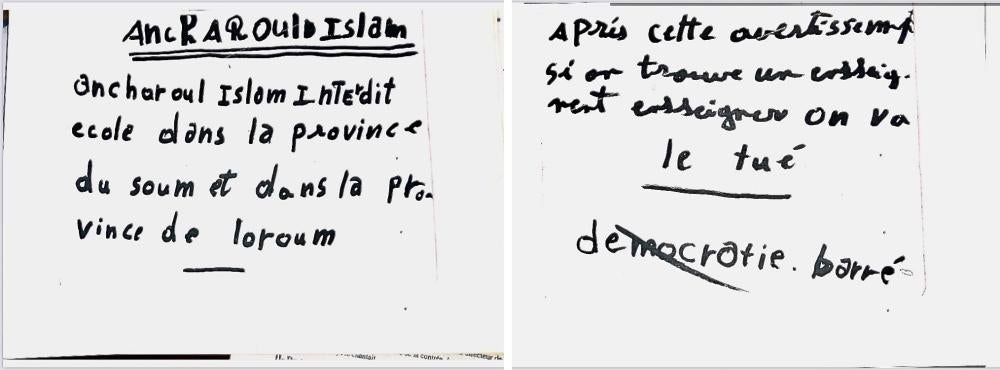 AncKAROulDIslam
ancharoul Islam InTErdit
ecole dans la province
du soum et dans la pro-
vince de loroum
Après cette avertissemt
si on trouve un ensseig-
nent ensseigner on va
le tué
democratie. barré